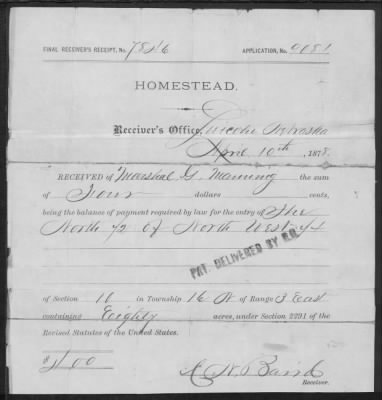 FINAL RECEIVER'S RECEIPT, No. 7846 APPLICATION, No. 9081
HOMESTEAD.
Receiver's Office, Lincoln Nebraska
April 10th, 1878.
RECEIVED of Marshal G. Manning the sum
of Four dollars cents,
being the balance of payment required by law for the entry of The
North 1/2 of North West 1/4
PAT. DELIVERED BY R.R.
of Section 10 in Township 16 N of Range 3 East
containing Eighty acres, under Section 2291 of the
Revised Statutes of the United States.
$4.00
Baird
Receiver.